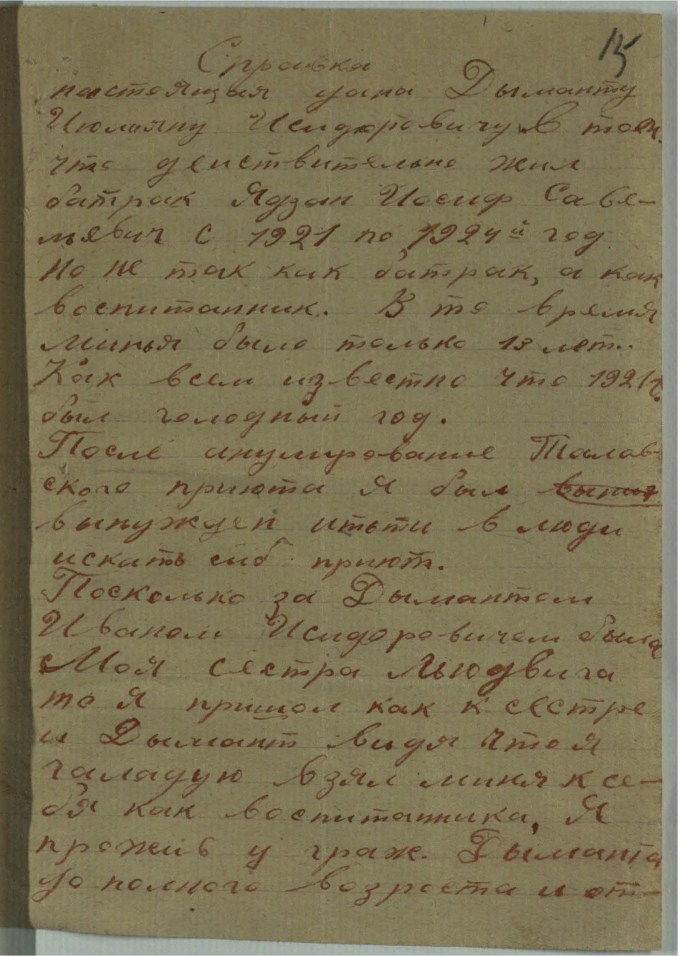 15
Справка
настоящая дана Дыманту
Июльяну Исидоровичу в том.
что действительно жил
батрак Ядзан Иосиф Саве-
льевич с 1921 по 1924й год
но не так как батрак, а как
воспитанник. В то время
минья было только 13 лет.
Как всем известно что 1921 г.
был голодный год.
После анулирование Талав-
ского приюта я был
вынужден итьти в люди
искать сиб приют.
Посколько за Дымантом
Иваном Исидоровичем была
Моя сестра Льюдвига
то я пришол как к сестре
и Дымант видя что я
галадую взял миня к се-
бя как воспитаника, Я
прожив у граж. Дыманта
до полного возроста и от-